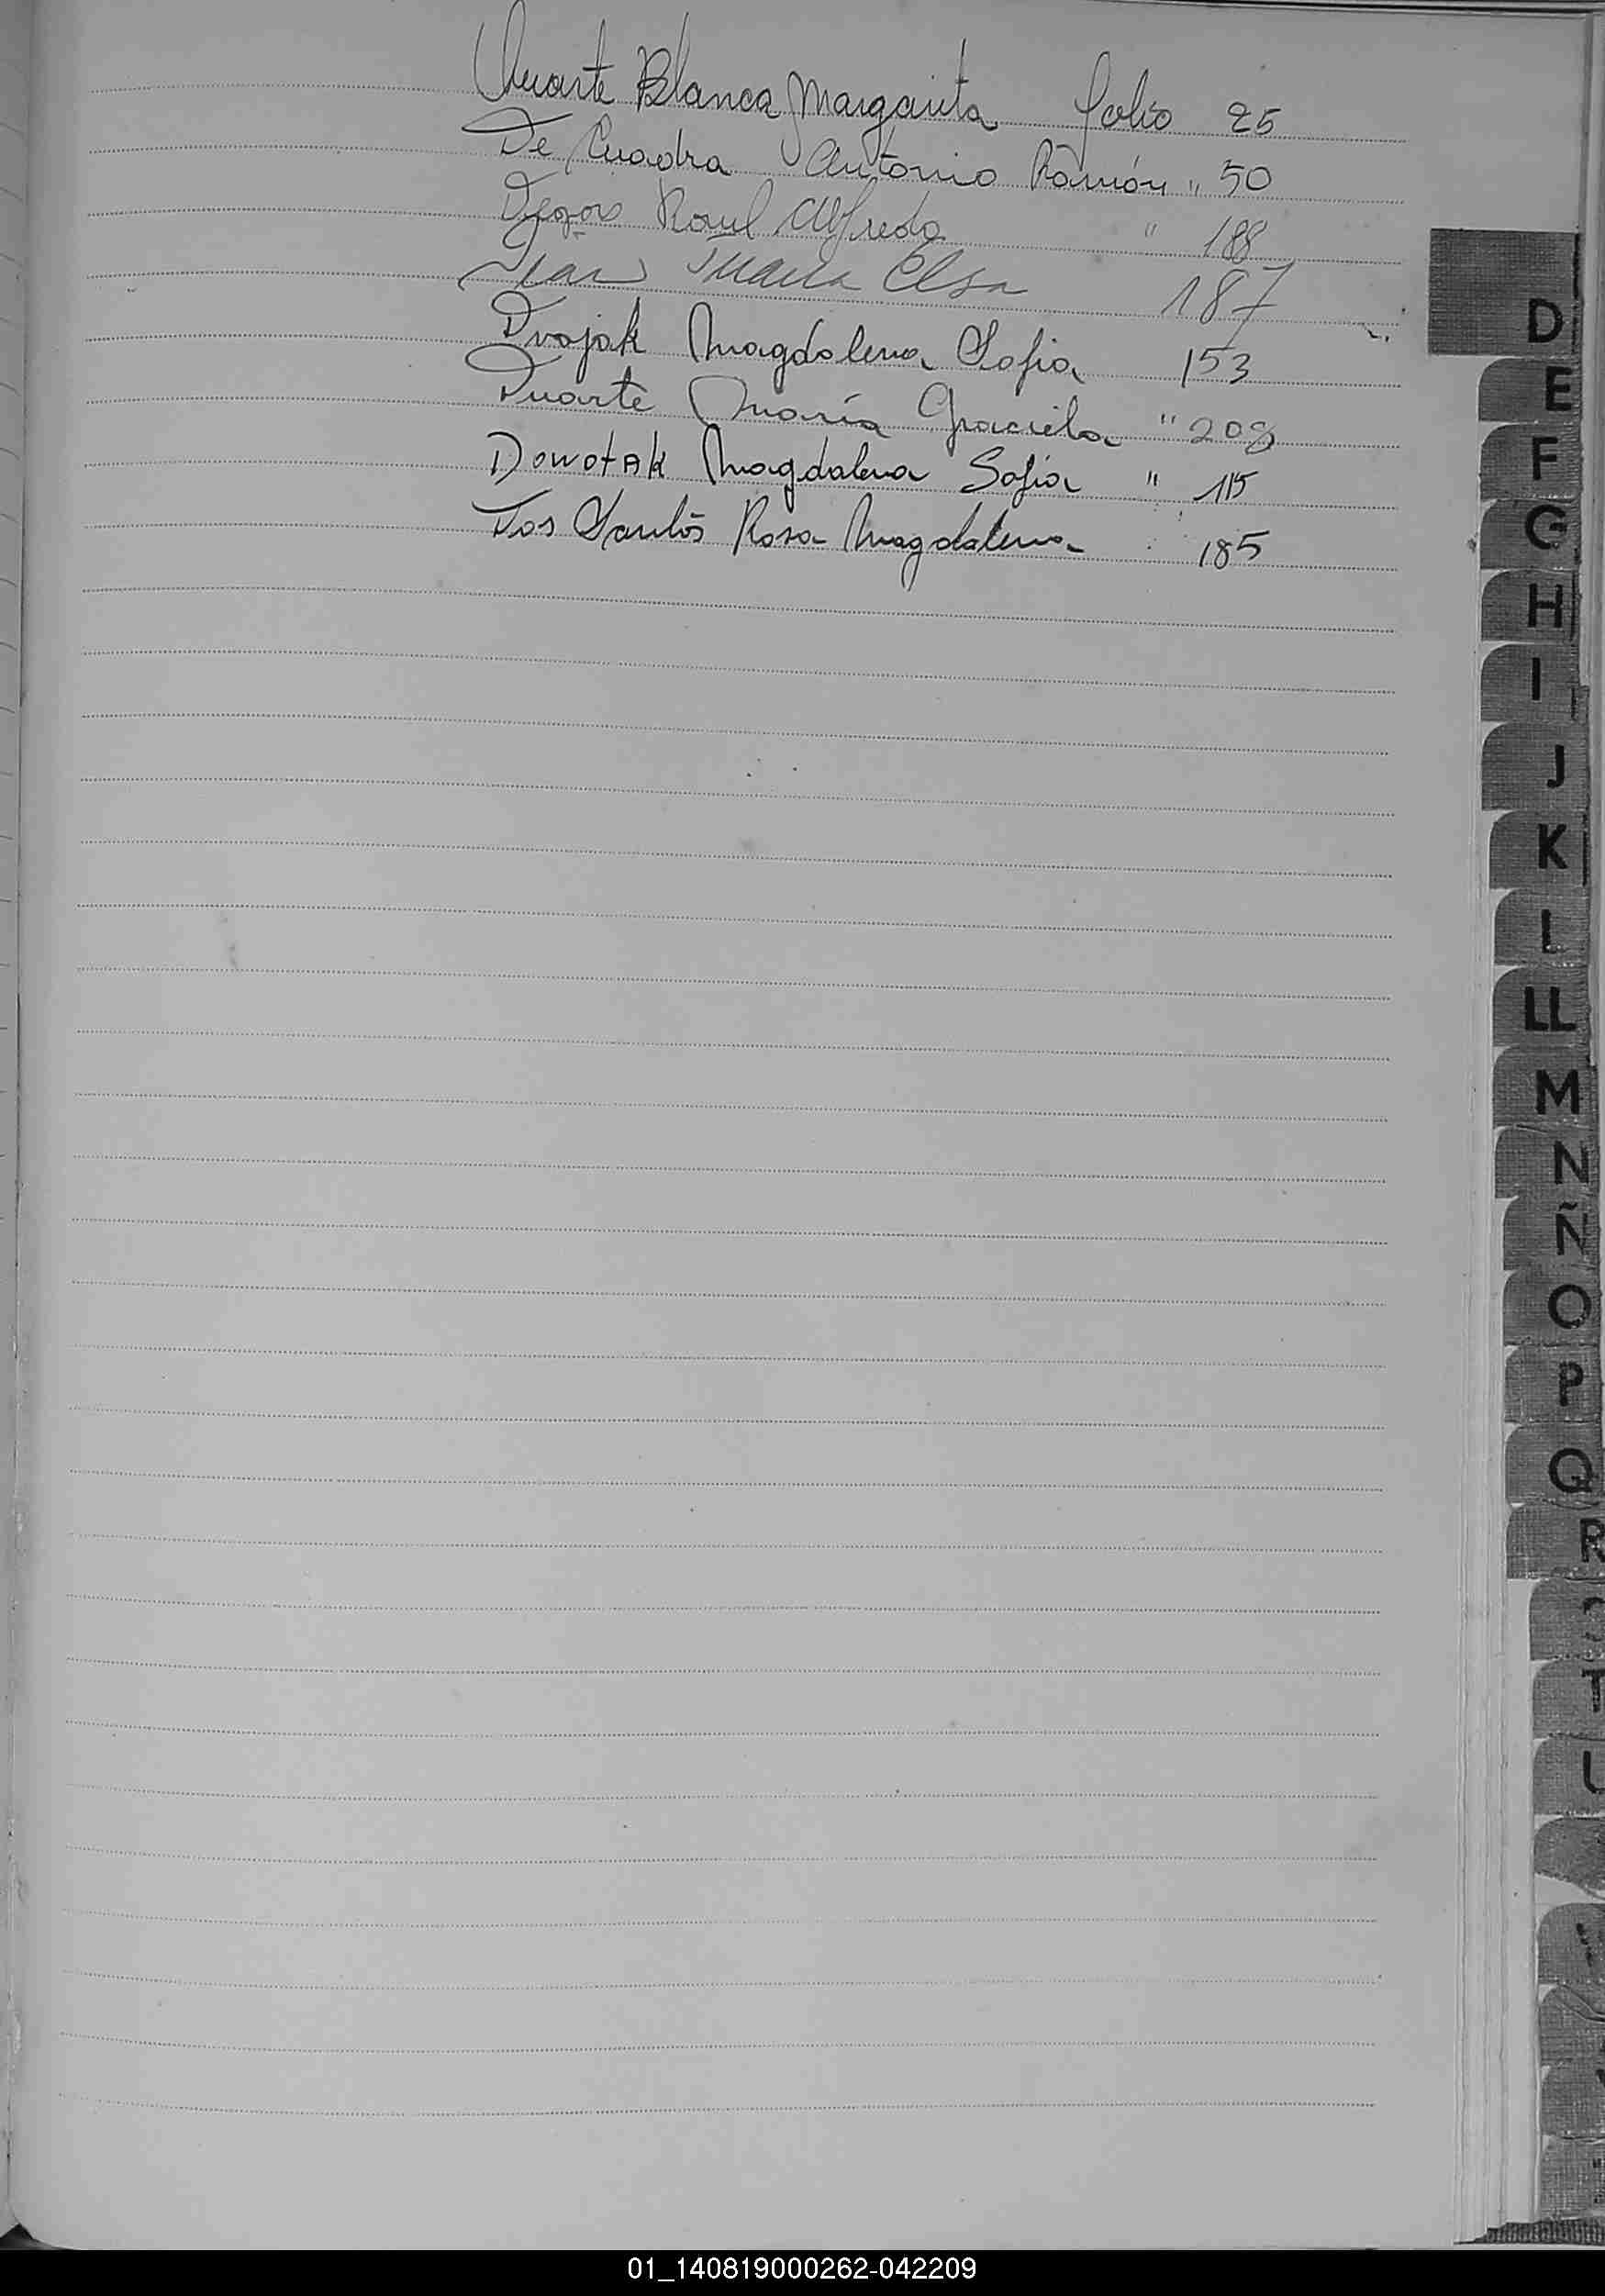 Duarte Blanca Margarita Folio 25
De Cuadra Antonio Ramón " 50
Raul Alfredo " 188
Maria Elsa 187
Dvojak Magdalena Sofia 153
Duarte María Graciela " 208
Dowotak Magdalena Sofia " 115
Dos Santos Rosa Magdalena 185
D
E
F
G
H
I
J
K
L
LL
M
N
Ñ
O
P
Q
R
T
01_140819000262-042209